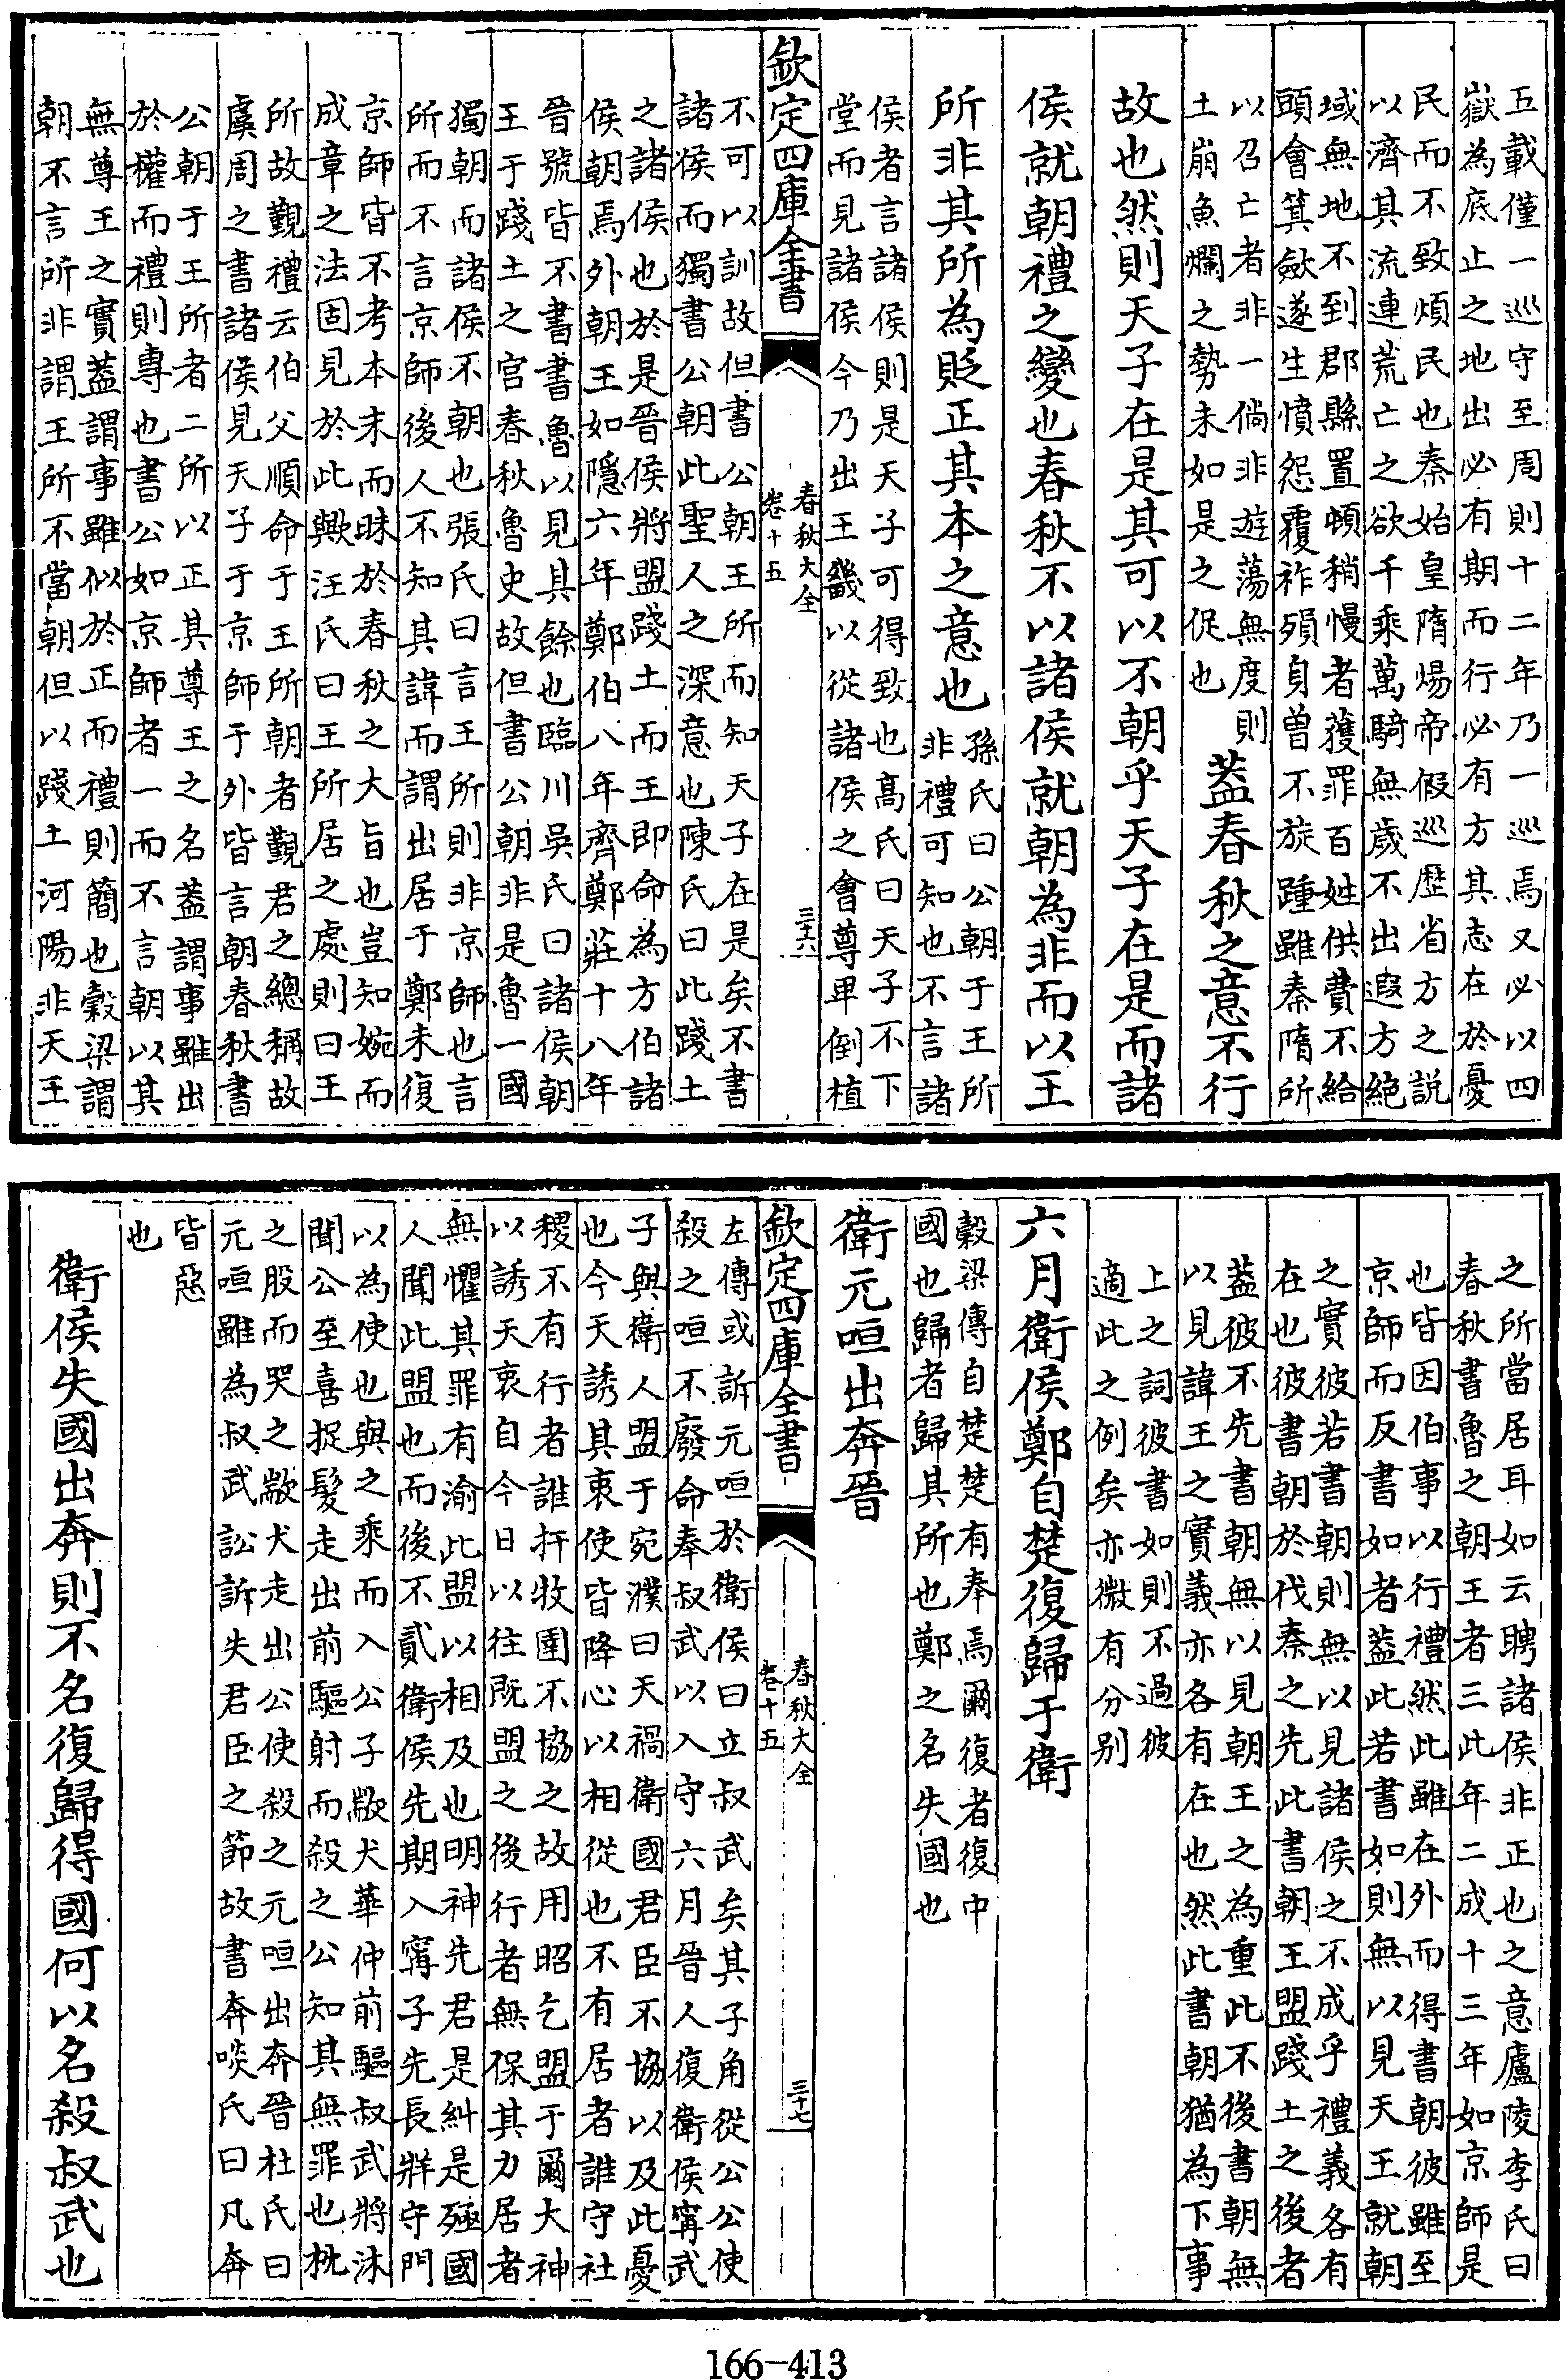 五載僅一巡守至周則十二年乃一巡焉又必以四
嶽為底止之地出必有期而行必有方其志在於憂
民而不致煩民也秦始皇隋煬帝假巡歷省方之説
以濟其流連荒亡之欲千乘萬騎無歲不出遐方絶
域無地不到郡縣置頓稍慢者獲罪百姓供費不給
頭會箕斂遂生憤怨覆祚殞身曾不旋踵雖秦隋所
以召亡者非一倘非遊蕩無度則
土崩魚爛之勢未如是之促也
蓋春秋之意不行
故也然則天子在是其可以不朝乎天子在是而諸
侯就朝禮之變也春秋不以諸侯就朝為非而以王
所非其所為貶正其本之意也
孫氏曰公朝于王所
非禮可知也不言諸
侯者言諸侯則是天子可得致也髙氏曰天子不下
堂而見諸侯今乃出王畿以從諸侯之會尊卑倒植
欽定四庫全書
春秋大全
卷十五
三十六
不可以訓故但書公朝王所而知天子在是矣不書
諸侯而獨書公朝此聖人之深意也陳氏曰此踐土
之諸侯也於是晉侯將盟踐土而王即命為方伯諸
侯朝焉外朝王如隱六年鄭伯八年齊鄭莊十八年
晉虢皆不書書魯以見其餘也臨川吳氏曰諸侯朝
王于踐土之宮春秋魯史故但書公朝非是魯一國
獨朝而諸侯不朝也張氏曰言王所則非京師也言
所而不言京師後人不知其諱而謂出居于鄭未復
京師皆不考本末而昧於春秋之大旨也豈知婉而
成章之法固見於此歟汪氏曰王所居之處則曰王
所故覲禮云伯父順命于王所朝者覲君之總稱故
虞周之書諸侯見天子于京師于外皆言朝春秋書
公朝于王所者二所以正其尊王之名蓋謂事雖出
於權而禮則專也書公如京師者一而不言朝以其
無尊王之實蓋謂事雖似於正而禮則簡也穀梁謂
朝不言所非謂王所不當朝但以踐土河陽非天王
之所當居耳如云聘諸侯非正也之意廬陵李氏曰
春秋書魯之朝王者三此年二成十三年如京師是
也皆因伯事以行禮然此雖在外而得書朝彼雖至
京師而反書如者蓋此若書如則無以見天王就朝
之實彼若書朝則無以見諸侯之不成乎禮義各有
在也彼書朝於伐秦之先此書朝王盟踐土之後者
蓋彼不先書朝無以見朝王之為重此不後書朝無
以見諱王之實義亦各有在也然此書朝猶為下事
上之詞彼書如則不過彼
適此之例矣亦微有分别
六月衛侯鄭自楚復歸于衛
穀梁傳自楚楚有奉焉爾復者復中
國也歸者歸其所也鄭之名失國也
衛元咺出奔晉
欽定四庫全書
春秋大全
卷十五
三十七
左傳或訴元咺於衛侯曰立叔武矣其子角從公公使
殺之咺不廢命奉叔武以入守六月晉人復衛侯甯武
子與衛人盟于宛濮曰天禍衛國君臣不協以及此憂
也今天誘其衷使皆降心以相從也不有居者誰守社
稷不有行者誰扞牧圉不協之故用昭乞盟于爾大神
以誘天衷自今日以往既盟之後行者無保其力居者
無懼其罪有渝此盟以相及也明神先君是糾是殛國
人聞此盟也而後不貳衛侯先期入甯子先長牂守門
以為使也與之乘而入公子歂犬華仲前驅叔武將沐
聞公至喜捉髮走出前驅射而殺之公知其無罪也枕
之股而哭之歂犬走出公使殺之元咺出奔晉杜氏曰
元咺雖為叔武訟訴失君臣之節故書奔啖氏曰凡奔
皆惡
也
衛侯失國出奔則不名復歸得國何以名殺叔武也
166-413